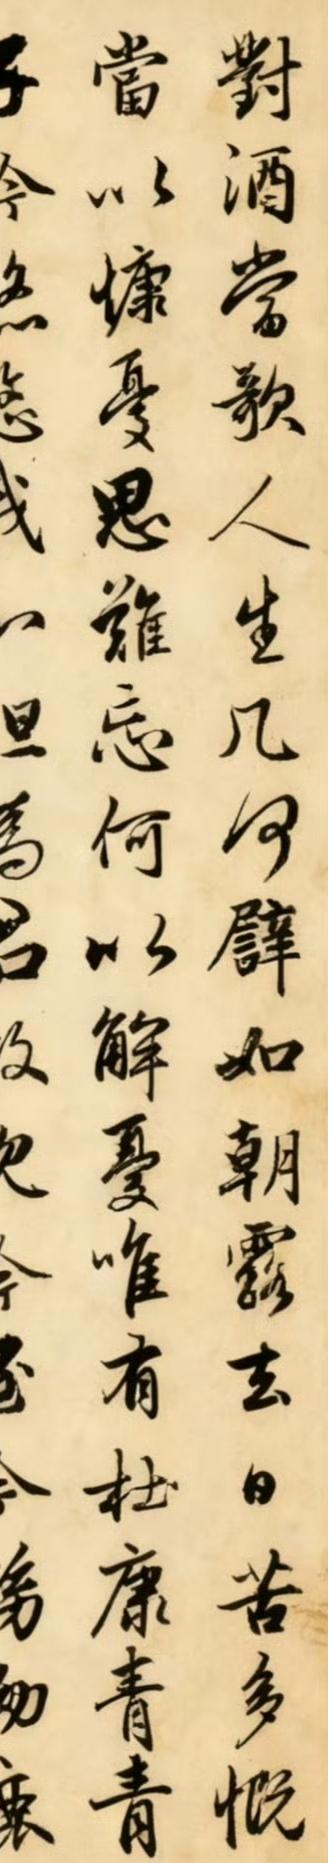 對酒當歌人生几何譬如朝露去日苦多慨
當以慷憂思難忘何以解憂唯有杜康青青
子衿悠悠我心但為君故沉吟至今呦呦鹿